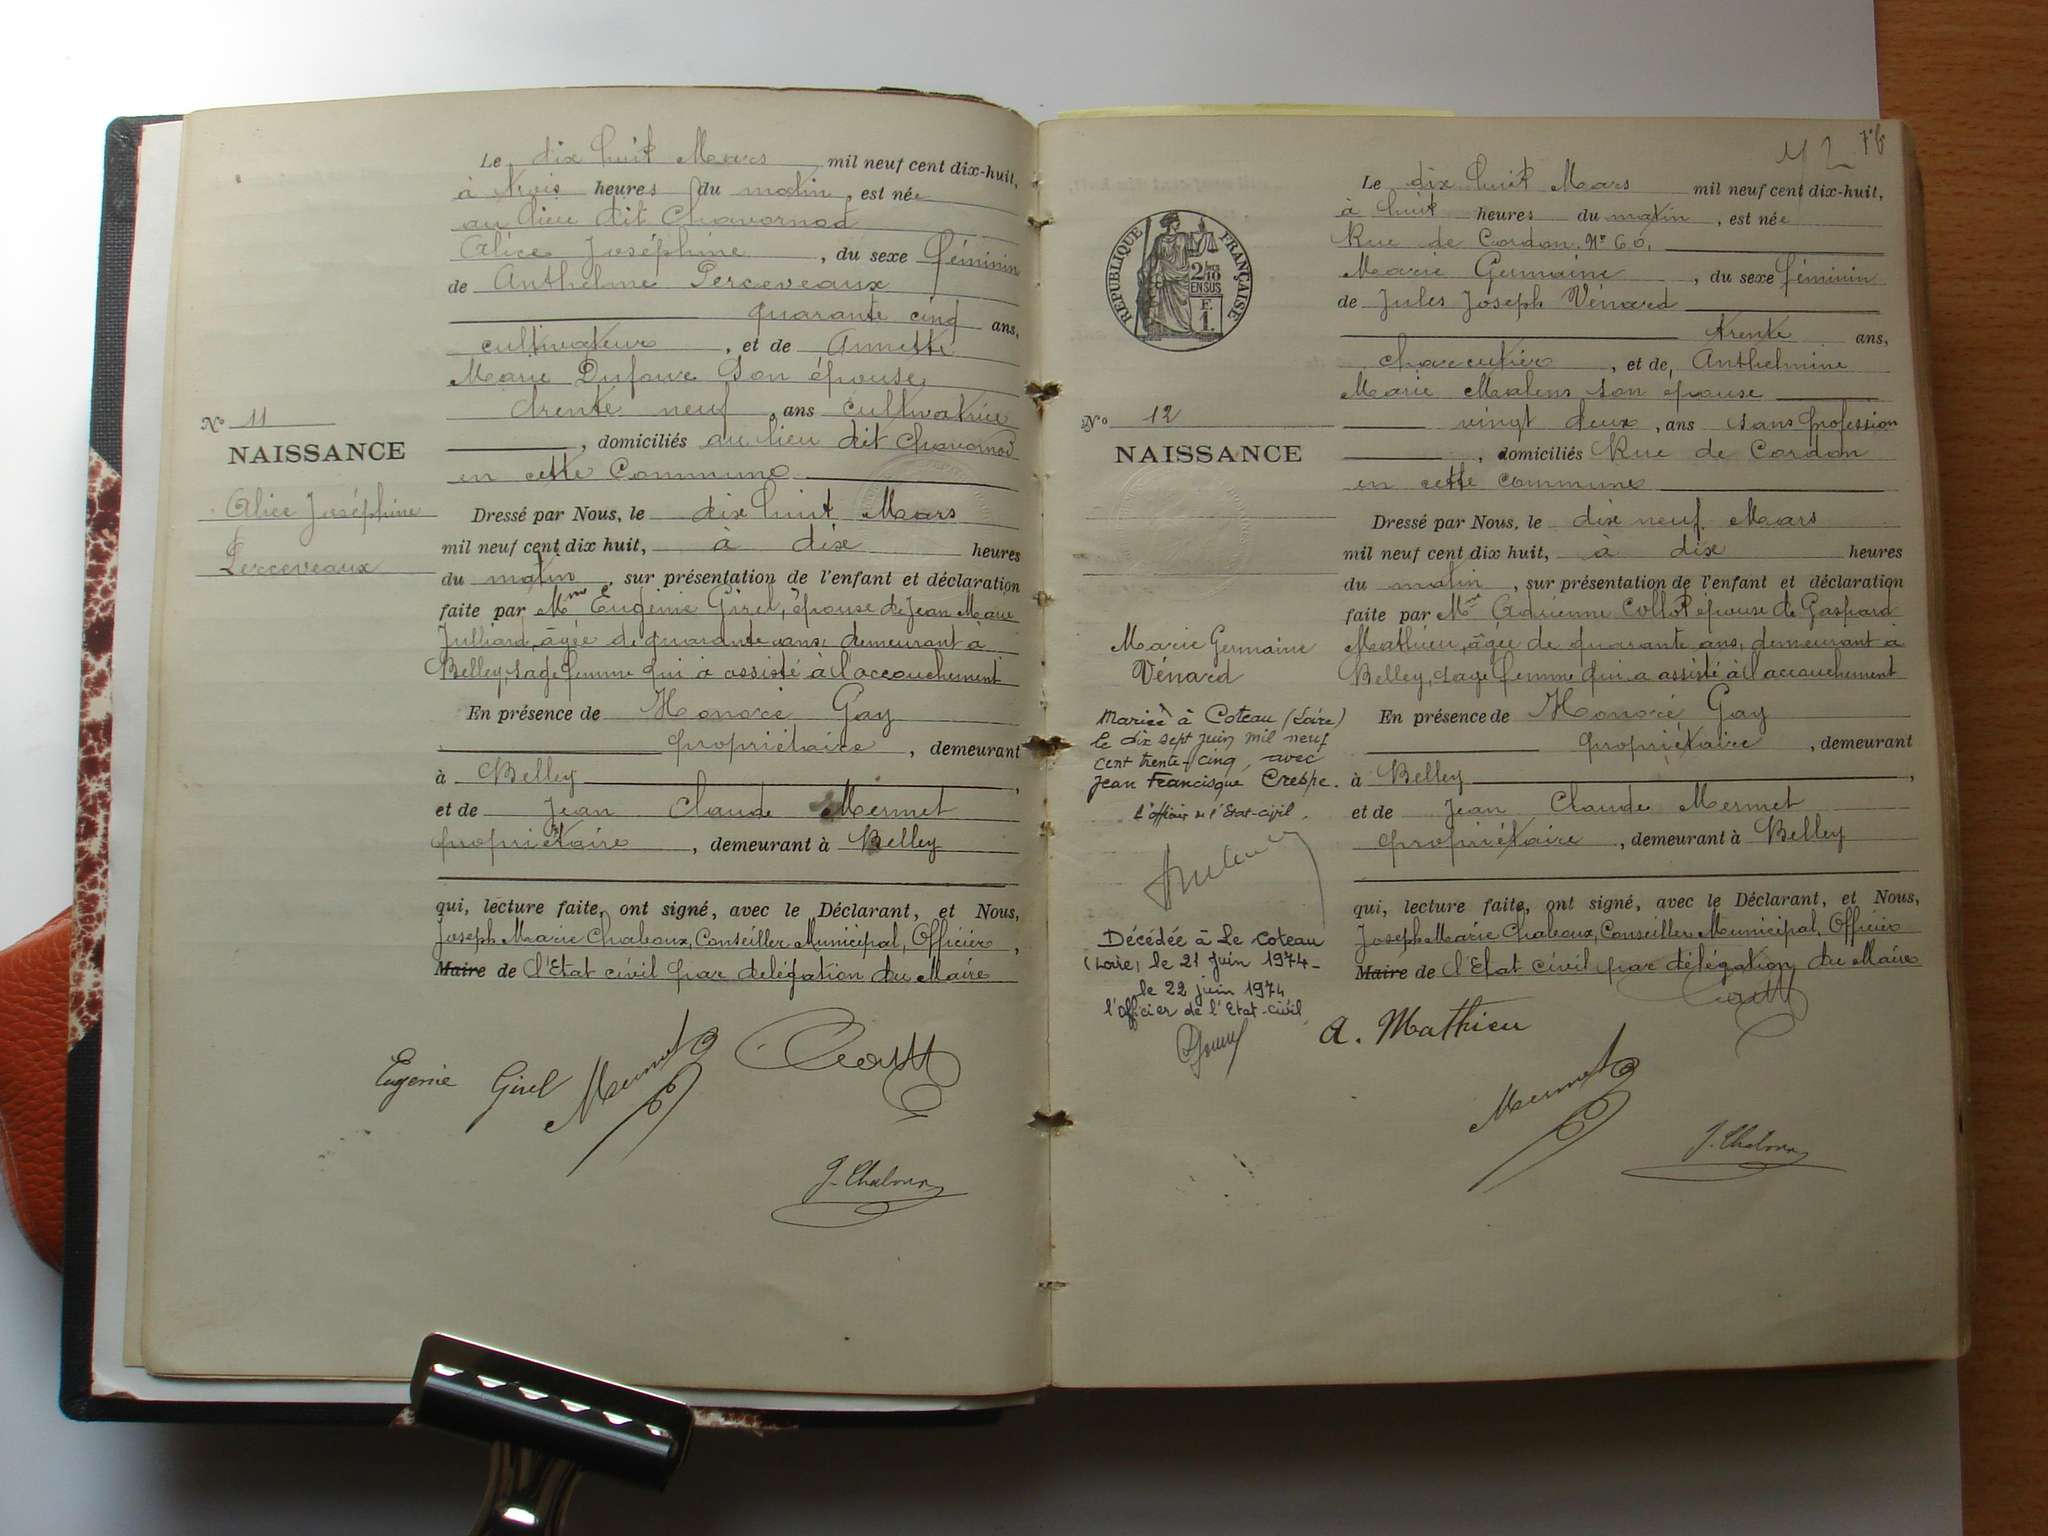 Le dix huit Mars mil neuf cent dix-huit,
à trois heures du matin, est née
au lieu dit Chavornod
Alice Joséphine, du sexe féminin
de Anthelme Perceveaux
quarante cinq ans,
cultivateur, et de Annette
Marie Dufour son épouse,
trente neuf ans cultivatrice
, domiciliés au lieu dit Chavornod
en cette Commune
N° 11
NAISSANCE
Alice Joséphine
Perceveaux
Dressé par Nous, le dix huit Mars
mil neuf cent dix huit, à dix heures
du matin, sur présentation de l'enfant et déclaration
faite par Mme Eugénie Girel, épouse de Jean Marie
Julliard, âgée de quarante ans, demeurant à
Belley, sage femme qui a assisté à l'accouchement
En présence de Honoré Gay
propriétaire, demeurant
à Belley,
et de Jean Claude Mermet
propriétaire, demeurant à Belley
qui, lecture faite, ont signé, avec le Déclarant, et Nous,
Joseph Marie Chaboux, Conseiller Municipal, Officier,
Maire de l'Etat civil par délégation du Maire
Eugénie Girel Mermet
J. Chaboux
42 76
REPUBLIQUE FRANÇAISE
2/10
EN SUS
F.
1.
Le dix huit Mars mil neuf cent dix-huit,
à huit heures du matin, est née
Rue de Cordon N° 60,
Marie Germaine, du sexe féminin
de Jules Joseph Vénard
trente ans,
charcutier, et de, Anthelmine
Marie son épouse
vingt deux, ans sans profession
, domiciliés Rue de Cordon
en cette commune
N° 12
NAISSANCE
Marie Germaine
Vénard
Mariée à Coteau (Loire)
le dix sept juin mil neuf
cent trente-cinq, avec
Jean Francisque Crespe.
l'officier de l'Etat-civil.
Décédée à Le Coteau
(Loire) le 21 juin 1974-
le 22 juin 1974
l'officier de l'Etat-civil
Dressé par Nous, le dix neuf Mars
mil neuf cent dix huit, à dix heures
du matin, sur présentation de l'enfant et déclaration
faite par Mme Adrienne Collot épouse de Gaspard
Mathieu, âgée de quarante ans, demeurant à
Belley, sage femme qui a assisté à l'accouchement
En présence de Honoré Gay
propriétaire, demeurant
à Belley,
et de Jean Claude Mermet
propriétaire, demeurant à Belley
qui, lecture faite, ont signé, avec le Déclarant, et Nous,
Joseph Marie Chaboux, Conseiller Municipal, Officier
Maire de l'Etat civil par délégation du Maire
A. Mathieu
Mermet
J. Chaboux